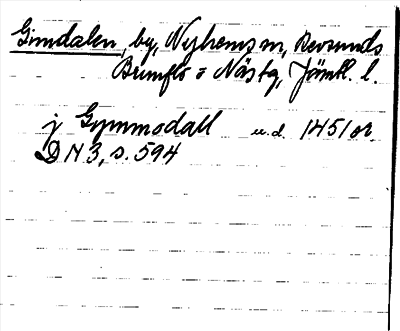 Gimdalen, by, Nyhems sn, Revsunds
Brunflo o Näs tg, Jämtl. l.
j Gymmodall u.d. 1451 or.
DN 3, s. 594